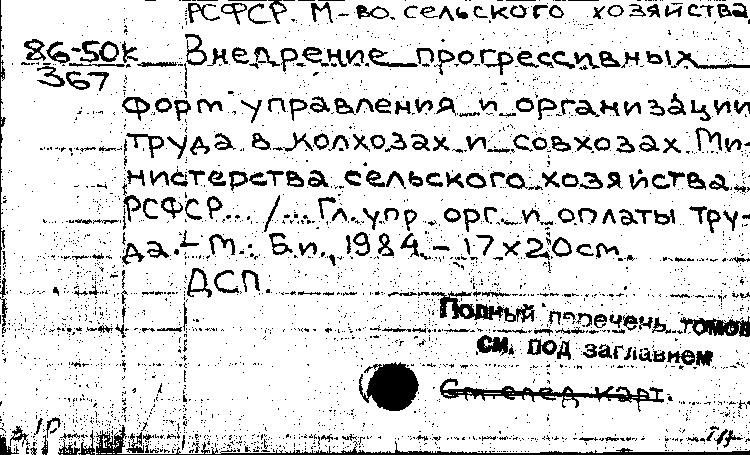 РСФСР. М-во. сельского хозяйства
86-50к
367
Внедрение прогрессивных
форм управления и организации
труда в колхозах и совхозах Ми-
нистерства сельского хозяйства
РСФСР... /... Гл. упр. орг. и оплаты тру-
да. – М.: Б.и., 1984. – 17×20см.
ДСП.
Полный перечень томов
см. под заглавием
См. след. карт.